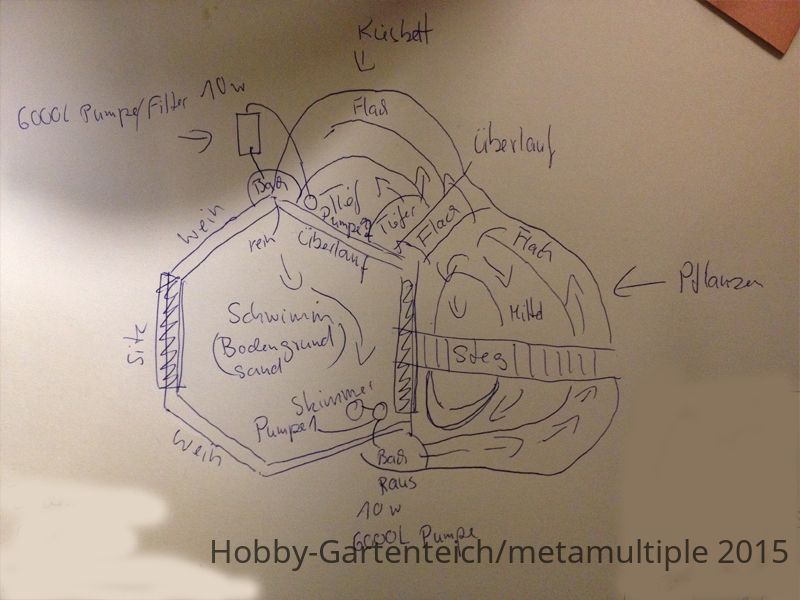 Kiesbett
6000L Pumpe/Filter 10w
Flach
Überlauf
Bach
Tief
Pumpe2
Tiefer
Flach
Flach
Wein
rein
Überlauf
Pflanzen
Mittel
Sitz
Schwimm
(Bodengrund
Sand)
Steg
Skimmer
Pumpe1
Wein
Bach
Raus
10w
6000L Pumpe
Hobby-Gartenteich/metamultiple 2015